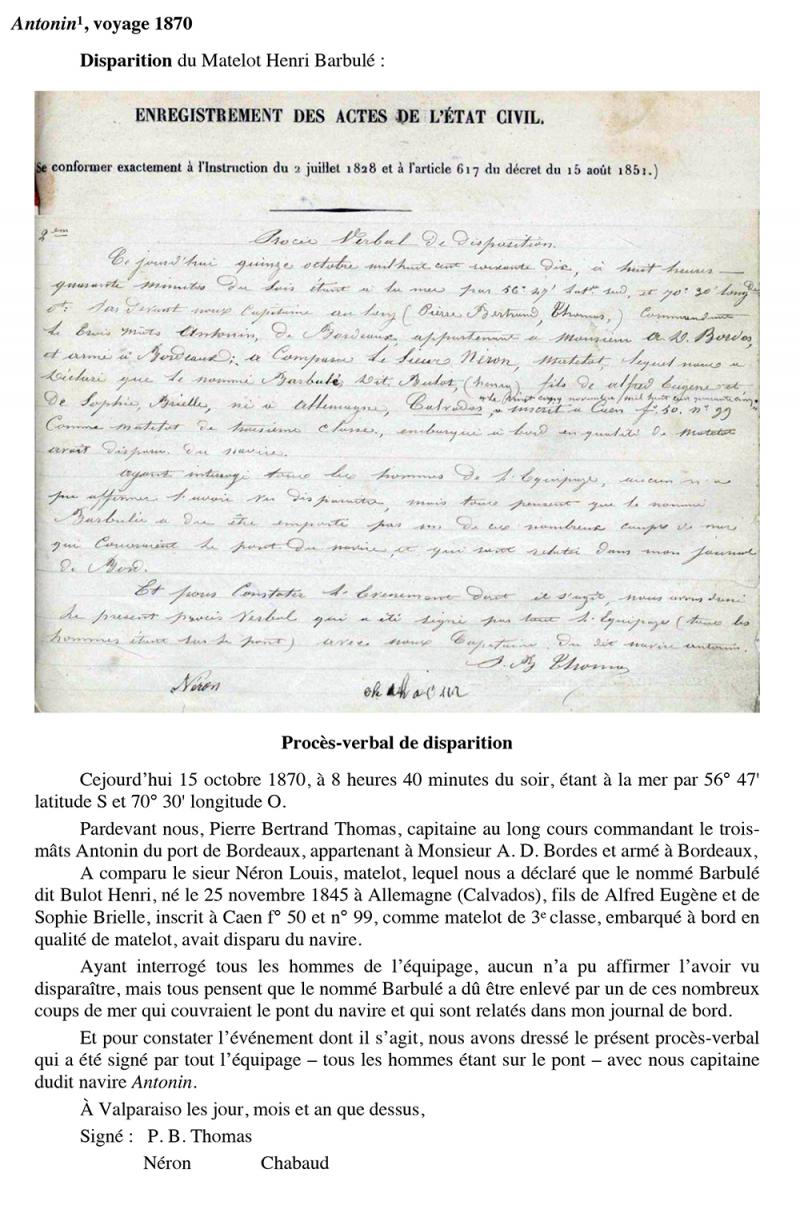 Antonin¹, voyage 1870
Disparition du Matelot Henri Barbulé :
ENREGISTREMENT DES ACTES DE L'ÉTAT CIVIL.
Se conformer exactement à l'Instruction du 2 juillet 1828 et à l'article 617 du décret du 15 août 1851.)
2ème
Procès Verbal de disposition.
Ce jourd'hui quinze octobre mil huit cent soixante dix, à huit heures
quarante minutes du soir étant à la mer par 56° 47' latde sud, et 70° 30' longde
Pardevant nous Capitaine au long (Pierre Bertrand, Thomas,) Commandant
le trois mâts Antonin, de Bordeaux, appartenant à Monsieur A. D. Bordes,
et armé à Bordeaux; a Comparu le Sieur Néron, Matelot, lequel nous a
déclaré que le nommé Barbulé dit Bulot, (henry) fils de alfred Eugène et
le vingt cinq novembre mil huit cent quarante cinq
De Sophie Brielle, né à Allemagne, Calvados, inscrit à Caen f° 50. n° 99
Comme matelot de troisième classe, embarqué à bord en qualité de matelot
avait disparu du navire.
ayant interrogé tous les hommes de l'Equipage, aucun n'a
pu affirmer l'avoir vu disparaître, mais tous pensent que le nommé
Barbulée a du être emporté par un de ces nombreux coups de mer
qui Couvraient le pont du navire, et qui sont relatés dans mon journal
de Bord.
Et pour Constater l'Evénement dont il s'agit, nous avons dressé
le présent procès Verbal qui a été signé par tout l'Equipage (tous les
hommes étant sur le pont) avec nous Capitaine du dit navire antonin.
P. B Thomas
Néron
Procès-verbal de disparition
Cejourd'hui 15 octobre 1870, à 8 heures 40 minutes du soir, étant à la mer par 56° 47'
latitude S et 70° 30' longitude O.
Pardevant nous, Pierre Bertrand Thomas, capitaine au long cours commandant le trois-
mâts Antonin du port de Bordeaux, appartenant à Monsieur A. D. Bordes et armé à Bordeaux,
A comparu le sieur Néron Louis, matelot, lequel nous a déclaré que le nommé Barbulé
dit Bulot Henri, né le 25 novembre 1845 à Allemagne (Calvados), fils de Alfred Eugène et de
Sophie Brielle, inscrit à Caen f° 50 et n° 99, comme matelot de 3e classe, embarqué à bord en
qualité de matelot, avait disparu du navire.
Ayant interrogé tous les hommes de l'équipage, aucun n'a pu affirmer l'avoir vu
disparaître, mais tous pensent que le nommé Barbulé a dû être enlevé par un de ces nombreux
coups de mer qui couvraient le pont du navire et qui sont relatés dans mon journal de bord.
Et pour constater l'événement dont il s'agit, nous avons dressé le présent procès-verbal
qui a été signé par tout l'équipage – tous les hommes étant sur le pont – avec nous capitaine
dudit navire Antonin.
À Valparaiso les jour, mois et an que dessus,
Signé : P. B. Thomas
Néron Chabaud